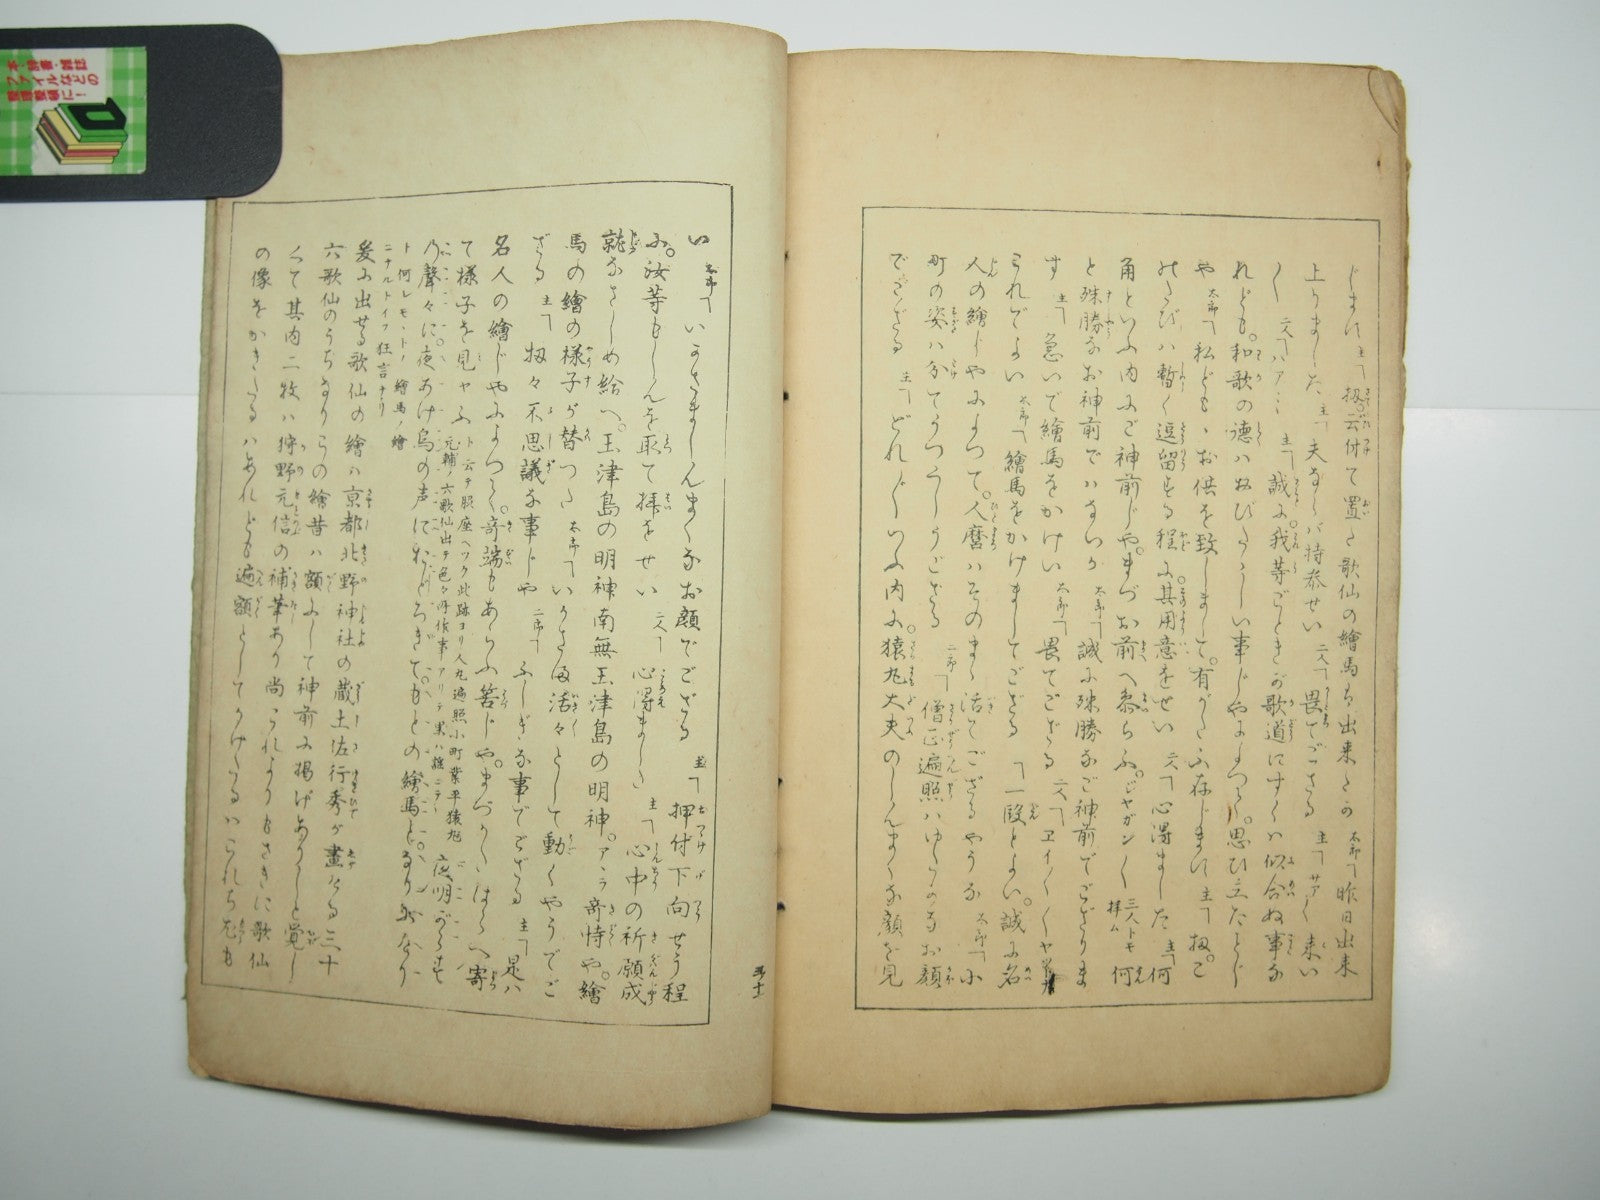 じます 主「扨云付て置た歌仙の繪馬ち出来たか 太郎「昨日出来
上りました 主「夫ならバ持参せい 二人「畏てござる 主「サア〱来い
〱 二人「ハア 主「誠に我等ごときが歌道にすくハ似合ぬ事な
れども。和歌の徳ハおびたゝしい事じやによつて。思ひ立たとじ
や 太郎「私ども、お供を致しまして。有がたふ存じます 主「扨こ
のたびハ暫く逗留する程に。其用意をせい 二人「心得ました 主「何
角といふ内にご神前じや。まづお前へ参らふ。ジヤガン〱 三人トモ拝ム 何
と殊勝なお神前でハないか 太郎「誠に殊勝なご神前でござりま
す 主「急いで繪馬をかけい 太郎「畏てござる 二人「エイ〱〱ヤツトナ
これでよい 太郎「繪馬をかけましてござる 「一段とよい。誠に名
人の繪じやによつて。人麿ハそのまゝ活てござるやうな 太郎「小
町の姿ハ分てうつくしうござる 二郎「僧正遍照ハ なお顔
でござる 主「どれ〱いふ内に。猿丸大夫のしんまくな顔を見
い 太郎「いかさましんまくなお顔でござる 主「押付下向せう程
に。汝等もしんを取て拝をせい 二人「心得ました 主「心中の祈願成
就なさしめ給へ。玉津島の明神南無玉津島の明神。アヽラ奇特や。繪
馬の繪の様子が替つた 太郎「いかさま活々として動くやうでご
ざる 主「扨々不思議な事じや 二郎「ふしぎな事でござる 主「是ハ
名人の繪じやによつて。奇端もあらふ筈じや。まづかたはらへ寄
て様子を見ヤふ ト云テ脇座ヘツク此跡ヨリ人丸遍照小町業平猿丸元輔六歌仙出テ色々所作事アリテ 夜明がらす
乃聲々に。夜あけ烏の声におどろきて。もとの繪馬と。なりにけり
ト何レモ、トノ繪馬ノ繪
ニナルトイフ狂言ナリ
爰に出せる歌仙の繪ハ京都北野神社の蔵土佐行秀が畫ける三十
六歌仙のうちなりこの繪昔ハ額にして神前に掲げありしと覚し
くて其内二枚ハ狩野元信の補筆あり尚これよりもさきに歌仙
の像をかきたるハあれども遍額としてかけたるハこれら尤も